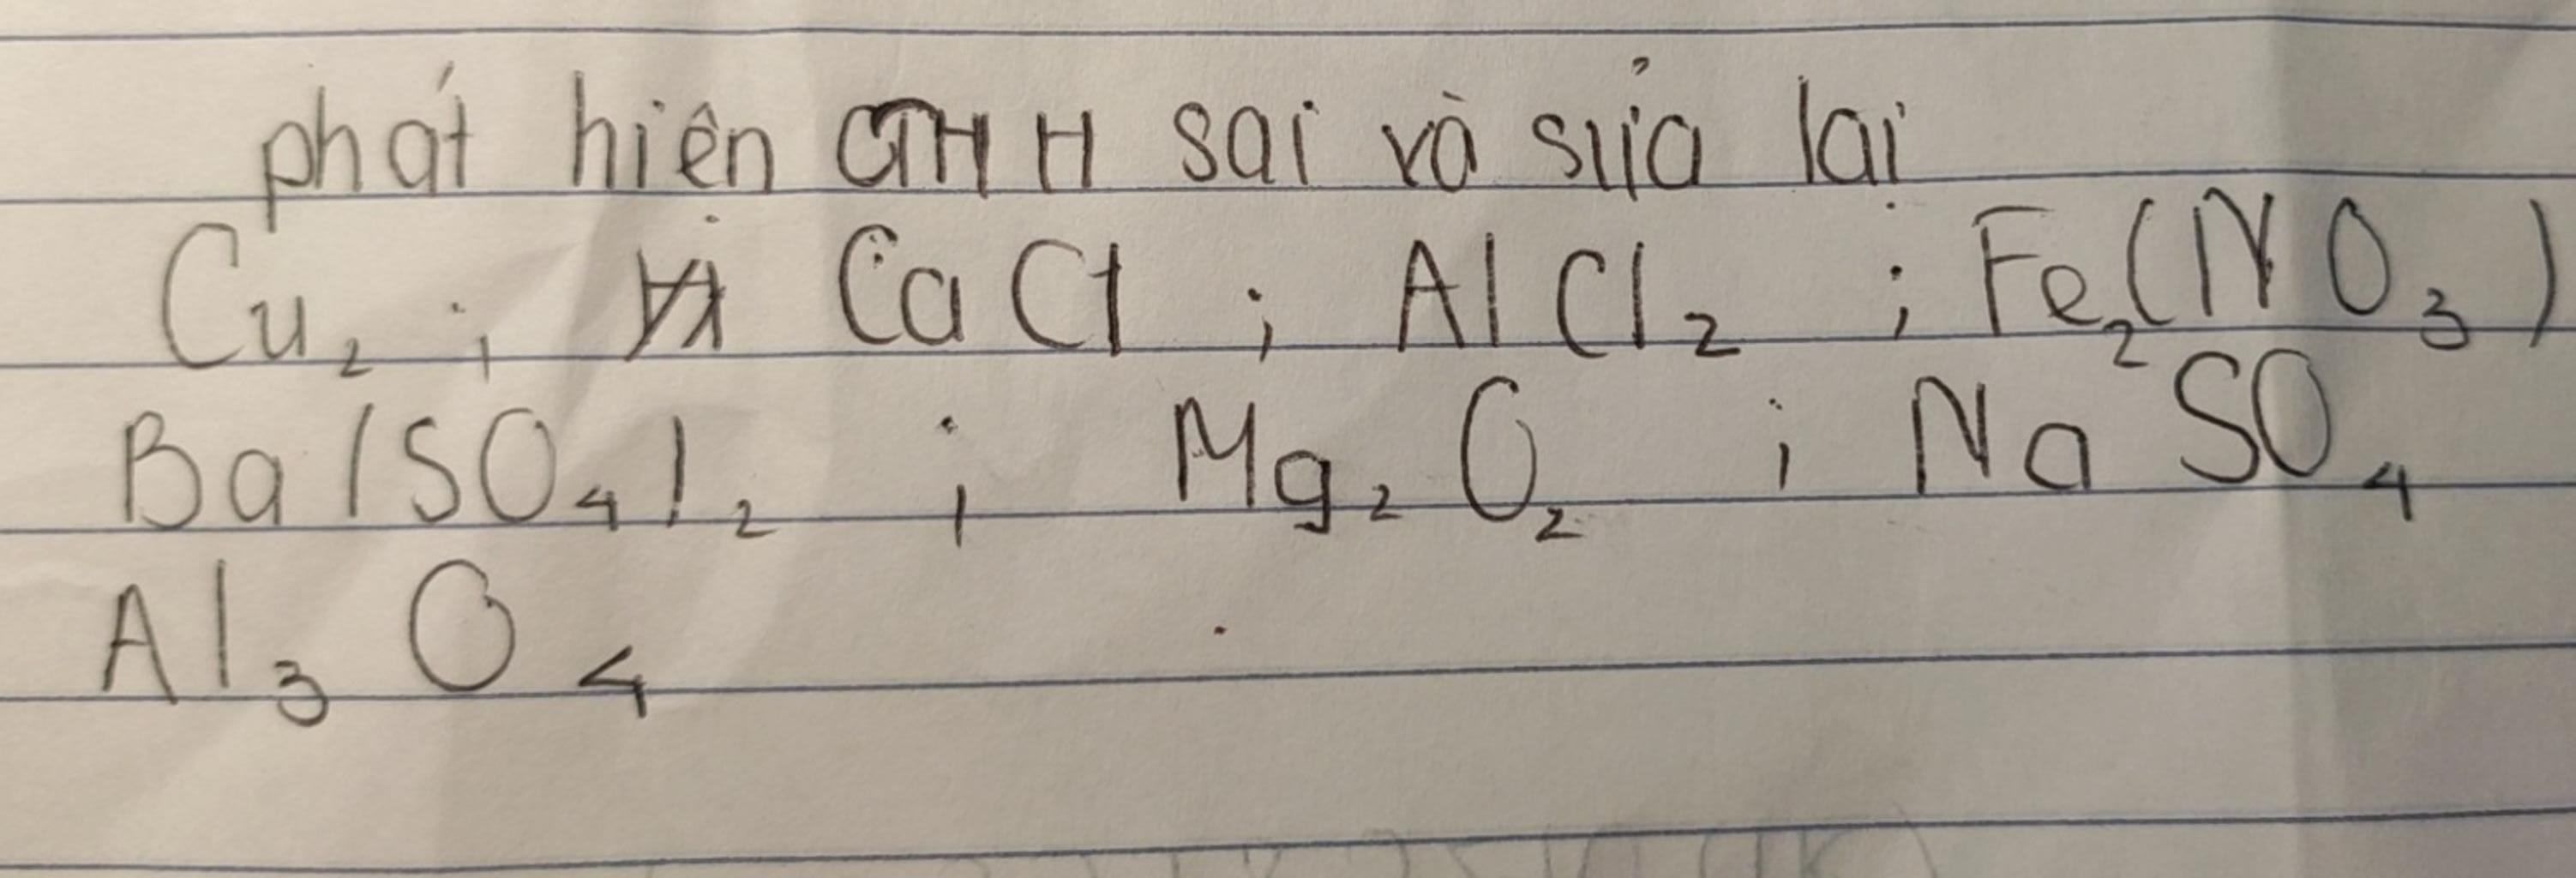 phát hiện CTHH sai và sửa lại
Cu₂ ; CaCl ; AlCl₂ ; Fe₂(NO₃)
Ba(SO₄)₂ ; Mg₂O₂ ; NaSO₄
Al₃O₄